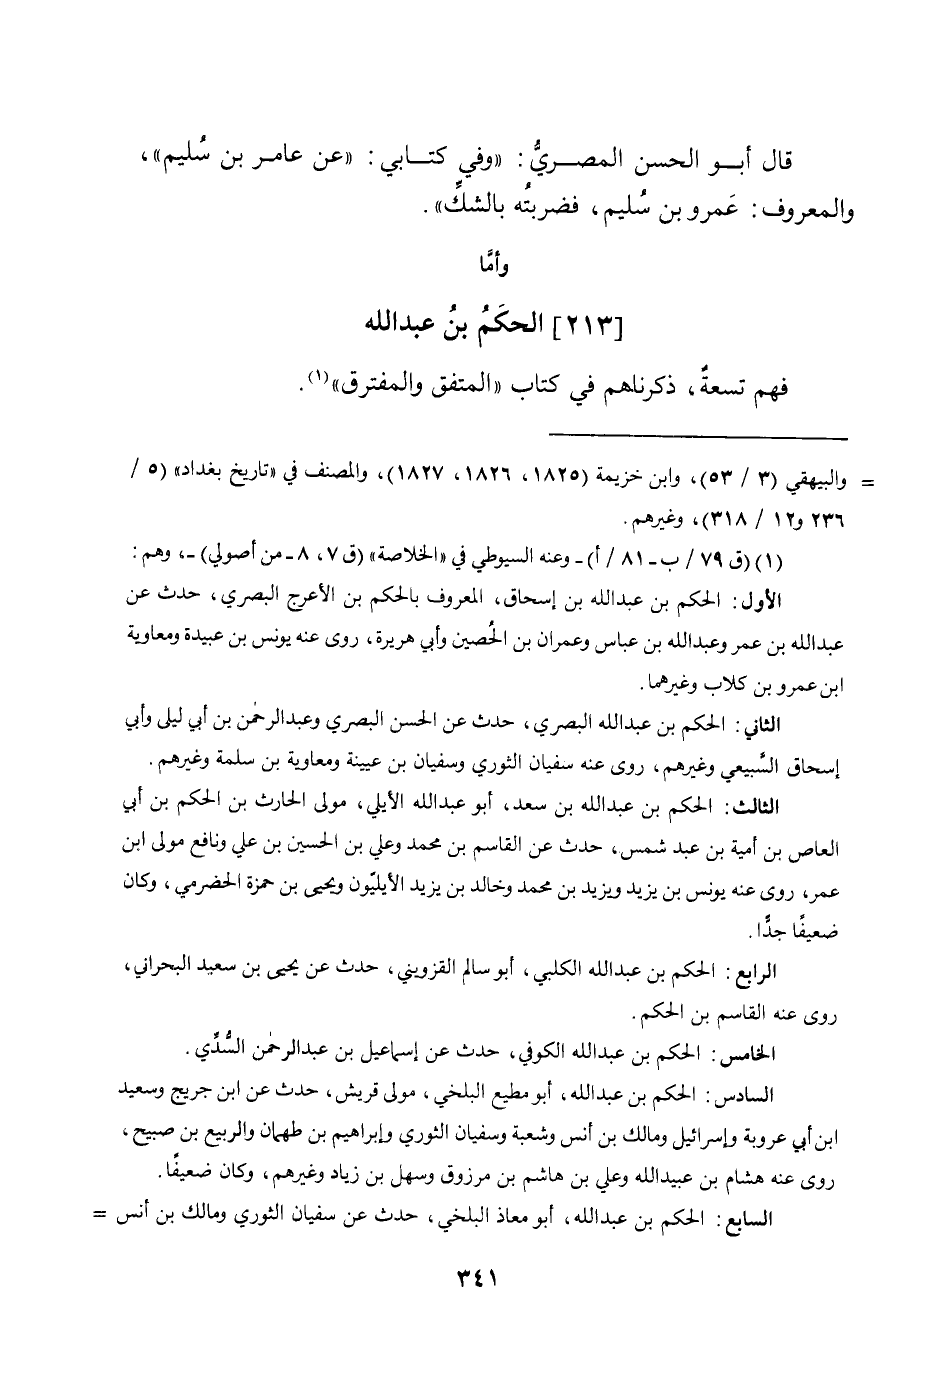 قال أبو الحسن المصريُّ: «وفي كتابي: «عن عامر بن سُليم»،
والمعروف: عَمرو بن سُليم، فضربتُه بالشكِّ».
وأمَّا
[٢١٣] الحكَمُ بنُ عبدالله
فهم تسعةٌ، ذكرناهم في كتاب «المتفق والمفترق»(١).
= والبيهقي (٣ / ٥٣)، وابن خزيمة (١٨٢٥، ١٨٢٦، ١٨٢٧)، والمصنف في «تاريخ بغداد» (٥ /
٢٣٦ و١٢ / ٣١٨)، وغيرهم.
(١) (ق ٧٩ / ب ـ ٨١ / أ) ـ وعنه السيوطي في «الخلاصة» (ق ٧، ٨ ـ من أصولي) ـ، وهم:
الأول: الحكم بن عبدالله بن إسحاق، المعروف بالحكم بن الأعرج البصري، حدث عن
عبدالله بن عمر وعبدالله بن عباس وعمران بن الحُصين وأبي هريرة، روى عنه يونس بن عبيدة ومعاوية
ابن عمرو بن كلاب وغيرهما.
الثاني: الحكم بن عبدالله البصري، حدث عن الحسن البصري وعبدالرحمٰن بن أبي ليلى وأبي
إسحاق السَّبيعي وغيرهم، روى عنه سفيان الثوري وسفيان بن عيينة ومعاوية بن سلمة وغيرهم.
الثالث: الحكم بن عبدالله بن سعد، أبو عبدالله الأيلي، مولى الحارث بن الحكم بن أبي
العاص بن أمية بن عبد شمس، حدث عن القاسم بن محمد وعلي بن الحسين بن علي ونافع مولى ابن
عمر، روى عنه يونس بن يزيد ويزيد بن محمد وخالد بن يزيد الأيليّون ويحيى بن حمزة الحضرمي، وكان
ضعيفًا جدًّا.
الرابع: الحكم بن عبدالله الكلبي، أبو سالم القزويني، حدث عن يحيى بن سعيد البحراني،
روى عنه القاسم بن الحكم.
الخامس: الحكم بن عبدالله الكوفي، حدث عن إسماعيل بن عبدالرحمٰن السُّدِّي.
السادس: الحكم بن عبدالله، أبو مطيع البلخي، مولى قريش، حدث عن ابن جريج وسعيد
ابن أبي عروبة وإسرائيل ومالك بن أنس وشعبة وسفيان الثوري وإبراهيم بن طهمان والربيع بن صبيح،
روى عنه هشام بن عبيدالله وعلي بن هاشم بن مرزوق وسهل بن زياد وغيرهم، وكان ضعيفًا.
السابع: الحكم بن عبدالله، أبو معاذ البلخي، حدث عن سفيان الثوري ومالك بن أنس =
٣٤١